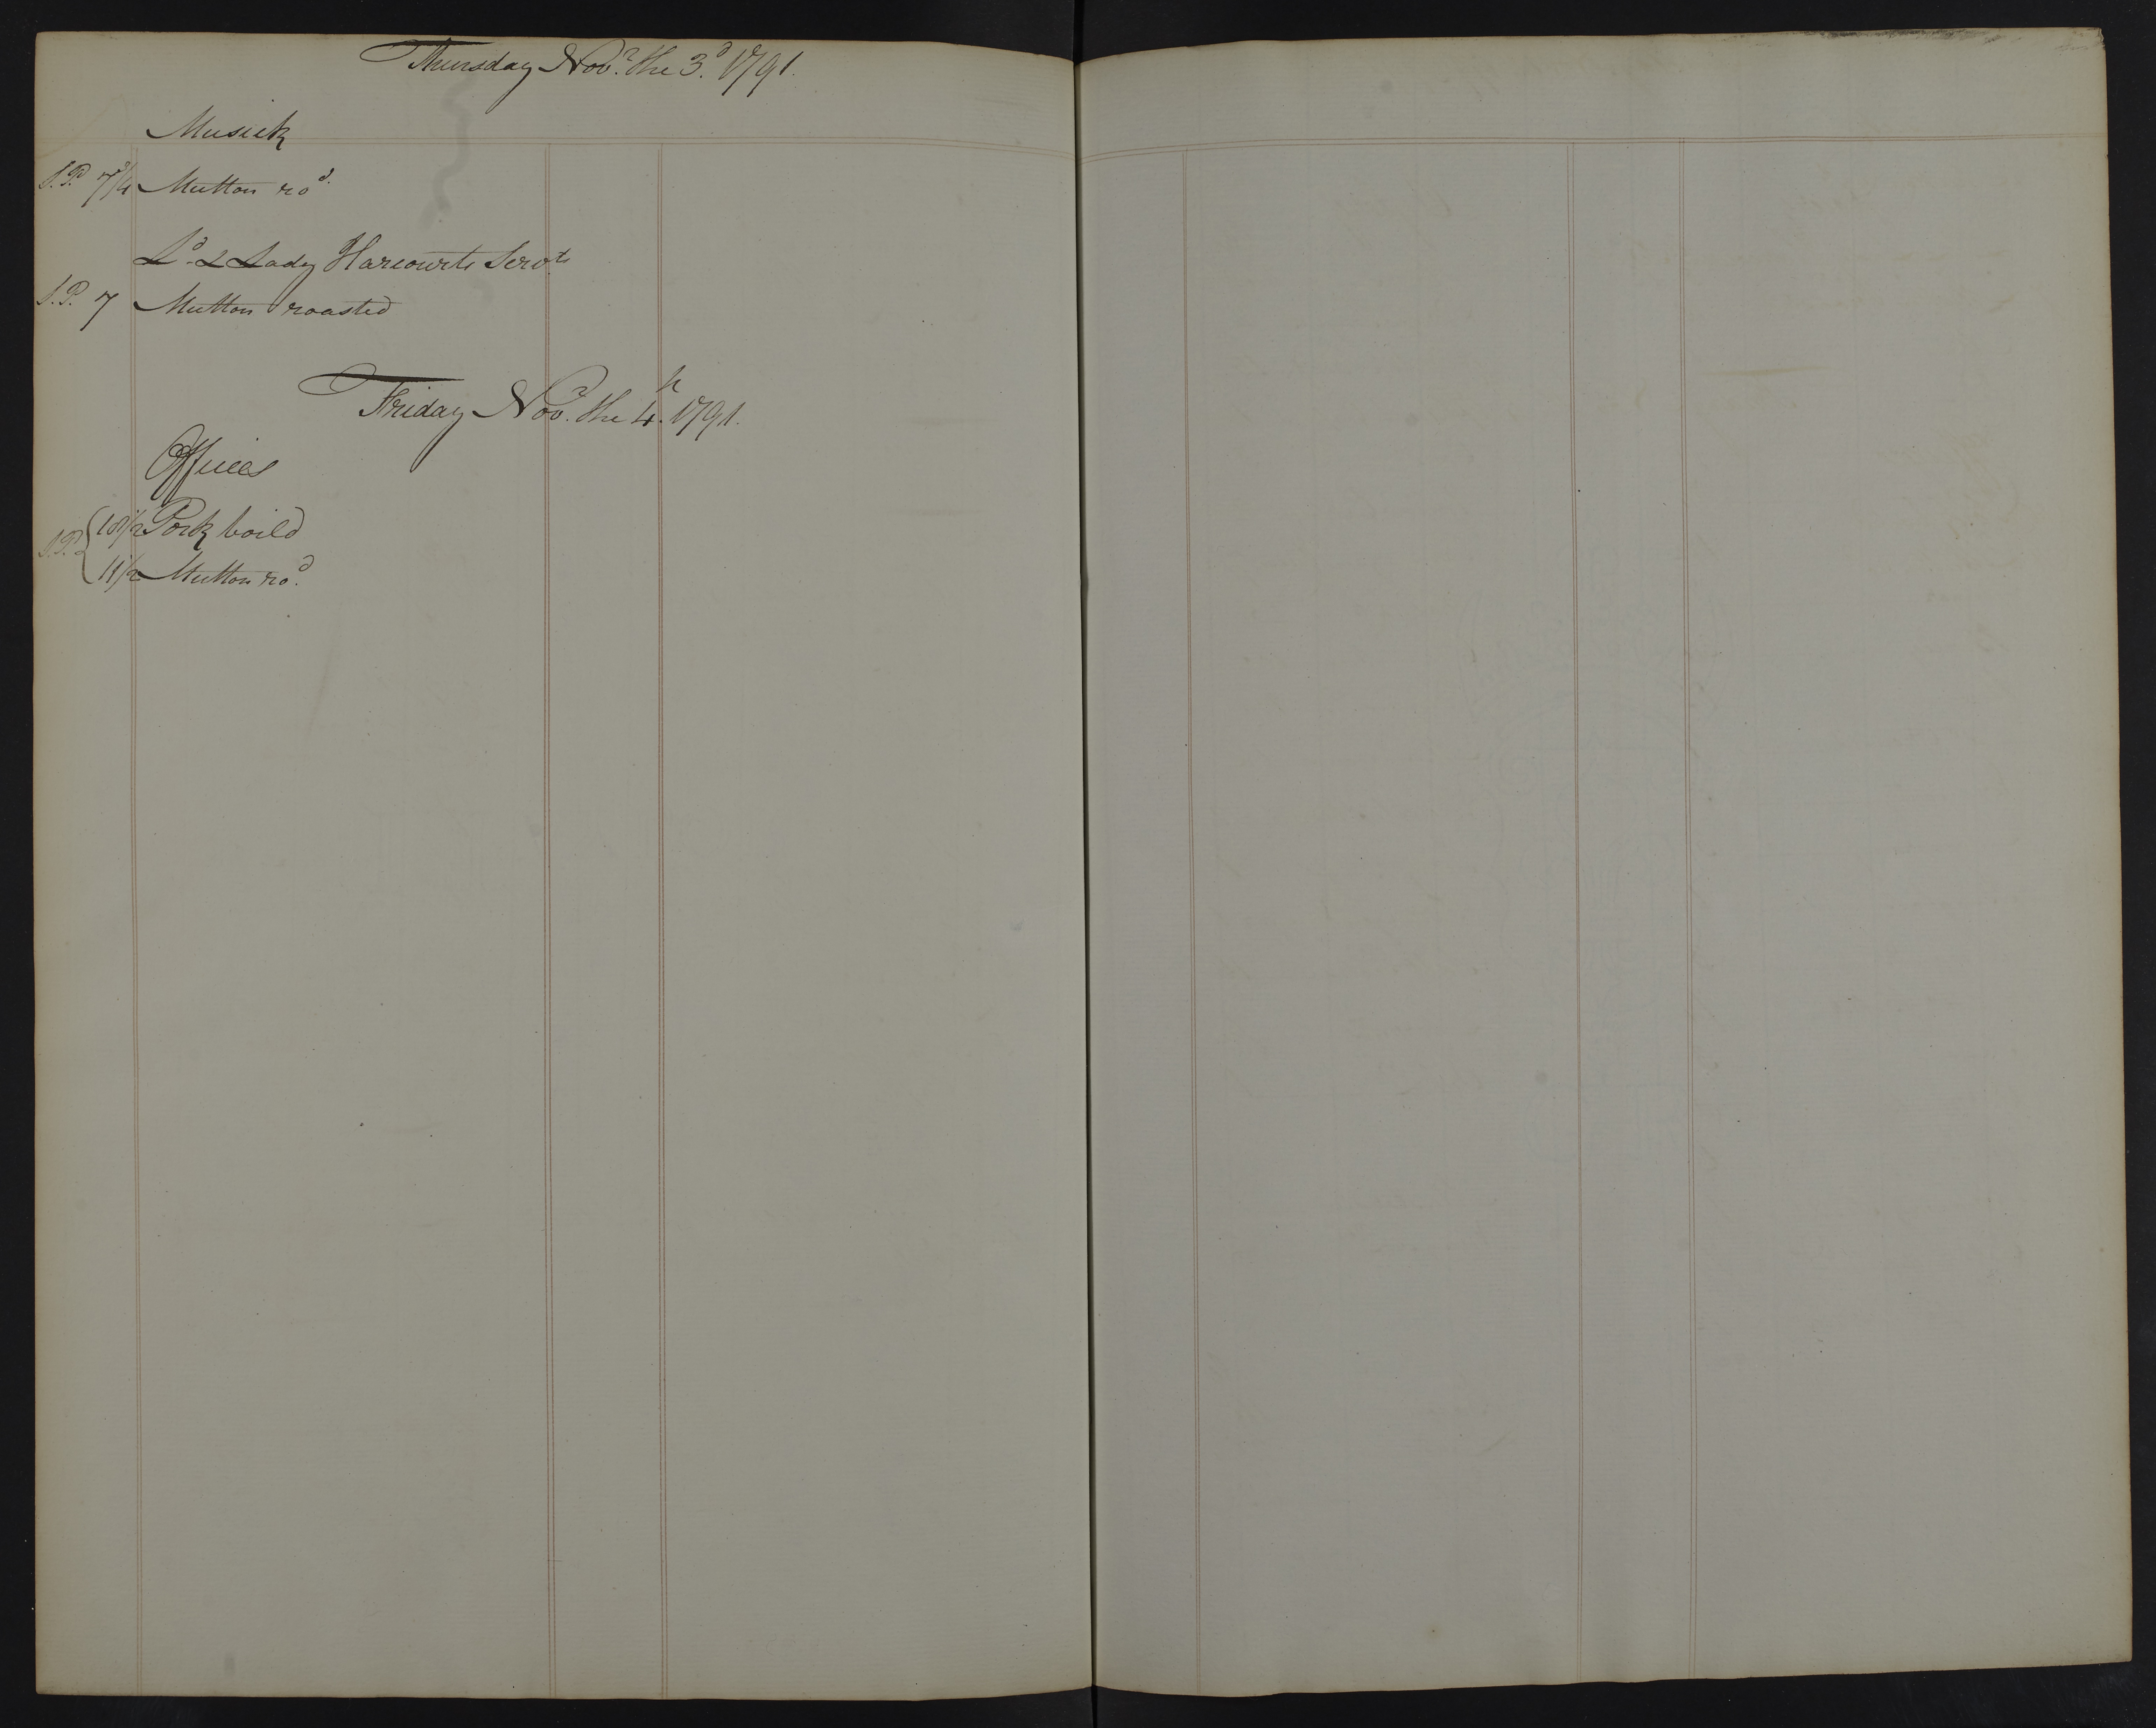 Thursday Novr. the 3d. 1791.
Musick
S.P. 7 1/4 Mutton rod.
Ld. & Lady Harcourts Servts
S.P. 7 Mutton roasted
Friday Novr. the 4h. 1791.
Offices
S.P. { 18 1/2 Pork boild
11 1/2 Mutton rod.